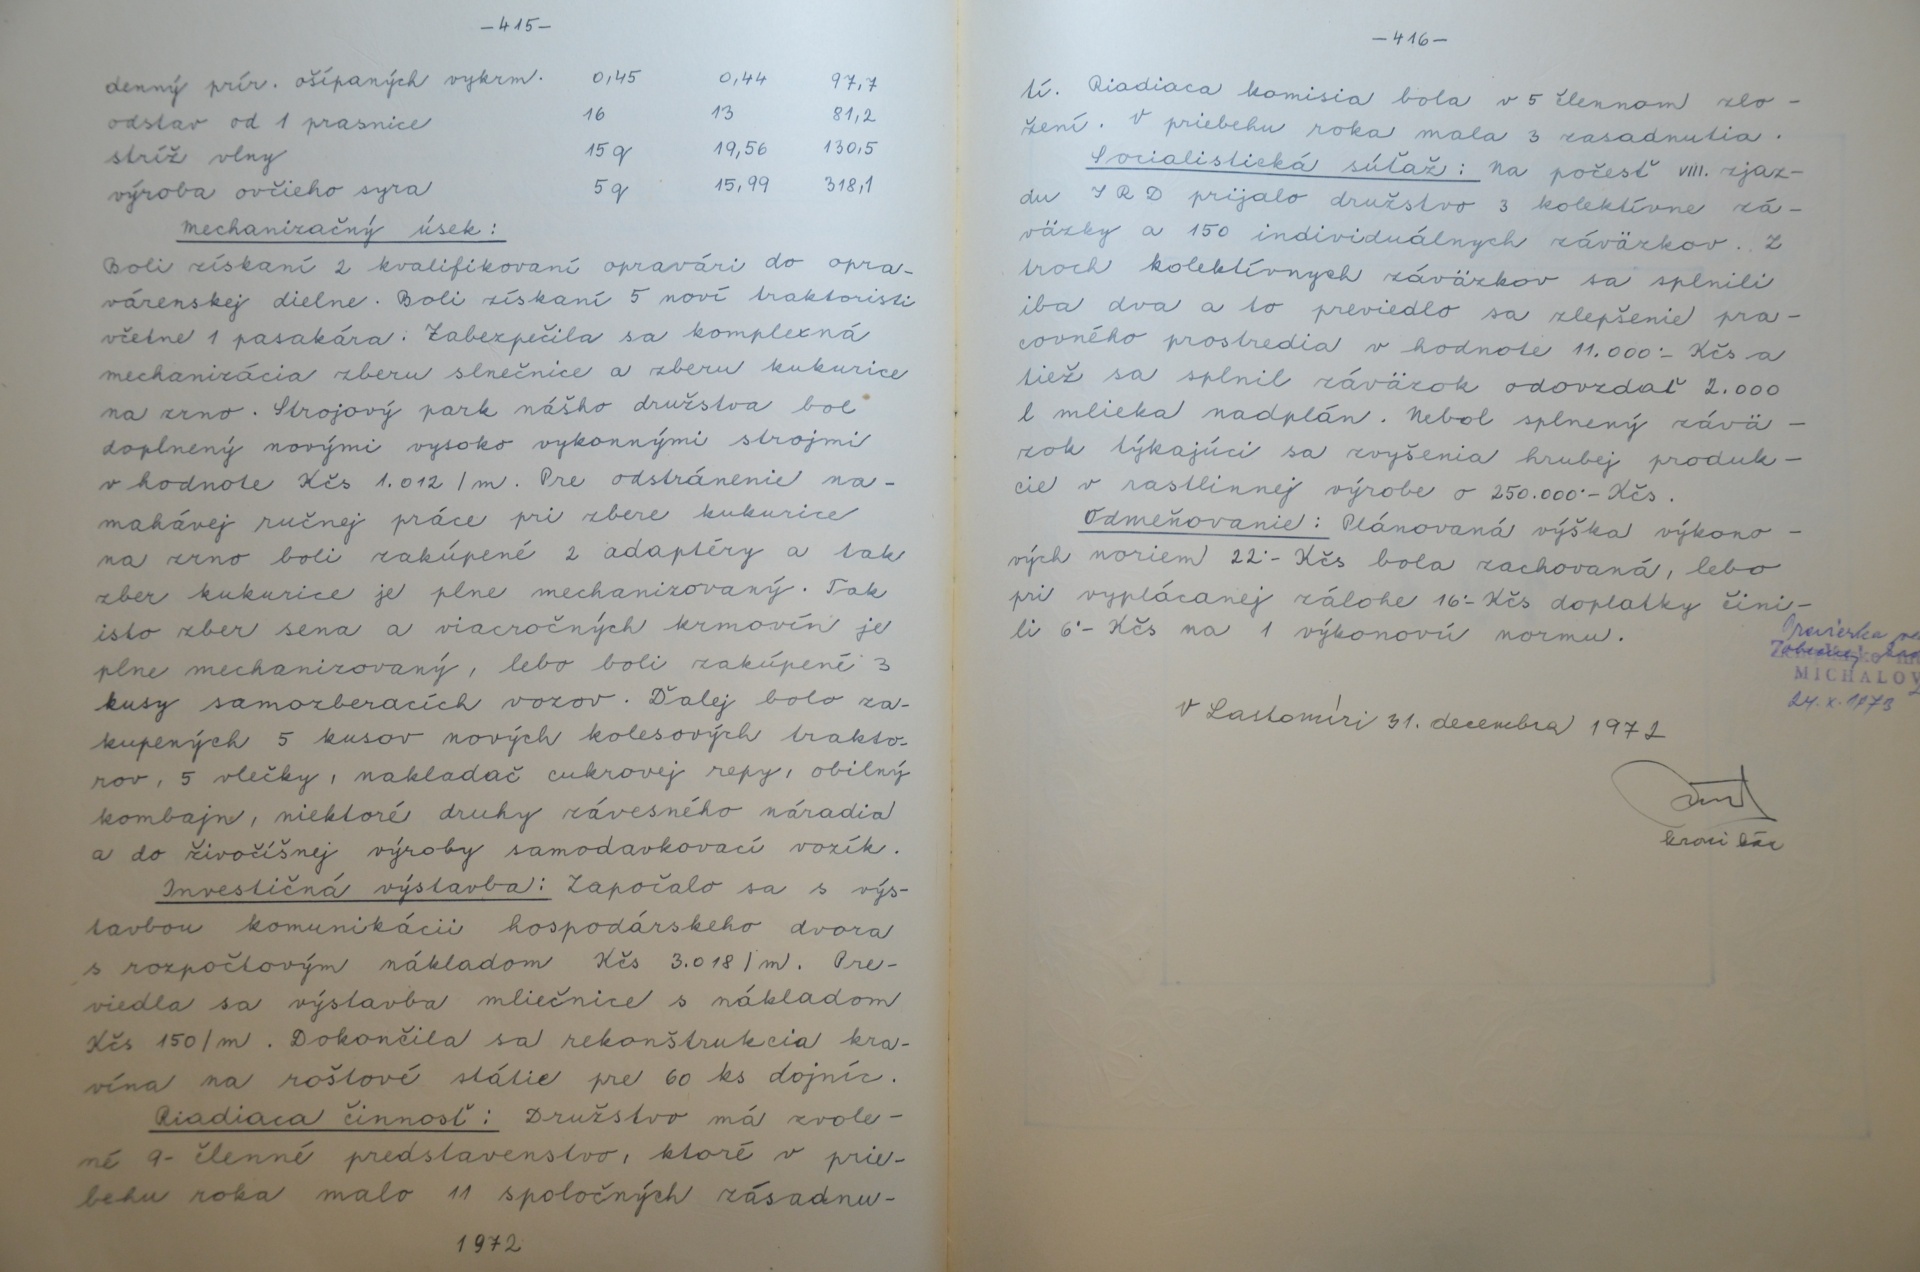 -415-
denný prír. ošípaných vykrm. 0,45 0,44 97,7
odstav od 1 prasnice 16 13 81,2
stríž vlny 15 q 19,56 130,5
výroba ovčieho syra 5 q 15,99 318,1
Mechanizačný úsek:
Boli získaní 2 kvalifikovaní opravári do opra-
várenskej dielne. Boli získaní 5 noví traktoristi
včetne 1 pasakára. Zabezpečila sa komplexná
mechanizácia zberu slnečnice a zberu kukurice
na zrno. Strojový park nášho družstva bol
doplnený novými vysoko vykonnými strojmi
v hodnote Kčs 1.012/m. Pre odstránenie na-
mahávej ručnej práce pri zbere kukurice
na zrno boli zakúpené 2 adaptéry a tak
zber kukurice je plne mechanizovaný. Tak
isto zber sena a viacročných krmovín je
plne mechanizovaný, lebo boli zakúpené 3
kusy samozberacích vozov. Ďalej bolo za-
kupených 5 kusov nových kolesových trakto-
rov, 5 vlečky, nakladač cukrovej repy, obilný
kombajn, niektoré druhy závesného náradia
a do živočíšnej výroby samodavkovací vozík.
Investičná výstavba: Započalo sa s výs-
tavbou komunikácii hospodárskeho dvora
s rozpočtovým nákladom Kčs 3.018/m. Pre-
viedla sa výstavba mliečnice s nákladom
Kčs 150/m. Dokončila sa rekonštrukcia kra-
vína na roštové státie pre 60 ks dojníc.
Riadiaca činnosť: Družstvo má zvole-
né 9-členné predstavenstvo, ktoré v prie-
behu roka malo 11 spoločných zásadnu-
1972
-416-
tí. Riadiaca komisia bola v 5 člennom zlo-
žení. V priebehu roka mala 3 zasadnutia.
Socialistická súťaž: Na počesť VIII. zjaz-
du JRD prijalo družstvo 3 kolektívne zá-
väzky a 150 individuálnych záväzkov. Z
troch kolektívnych záväzkov sa splnili
iba dva a to previedlo sa zlepšenie pra-
covného prostredia v hodnote 11.000.- Kčs a
tiež sa splnil záväzok odovzdať 2.000
l mlieka nadplán. Nebol splnený závä-
zok týkajúci sa zvyšenia hrubej produk-
cie v rastlinnej výrobe o 250.000.- Kčs.
Odmeňovanie: Plánovaná výška výkono-
vých noriem 22.- Kčs bola zachovaná, lebo
pri vyplácanej zálohe 16.- Kčs doplatky čini-
li 6.- Kčs na 1 výkonovú normu.
MICHALOV
24.X.1973
V Lastomíri 31. decembra 1972